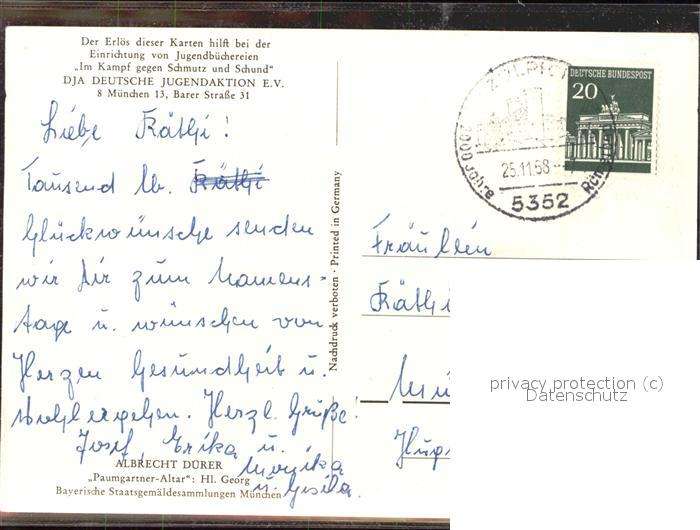 Der Erlös dieser Karten hilft bei der
Einrichtung von Jugendbüchereien
„Im Kampf gegen Schmutz und Schund"
DJA DEUTSCHE JUGENDAKTION E.V.
8 München 13, Barer Straße 31
Liebe Käthi!
Tausend lb. Käthi
Glückwünsche senden
wir Dir zum Namens-
tage u. wünschen von
Herzen Gesundheit u.
Wohlergehen. Herzl. Grüße
Josef, Erika u.
Monika
u. Gisela.
ALBRECHT DÜRER
„Paumgartner-Altar": Hl. Georg
Bayerische Staatsgemäldesammlungen München
Nachdruck verboten · Printed in Germany
ZÜLPICH
25.11.68
5352
DEUTSCHE BUNDESPOST
20
Fräulein
Käthi
Mü
privacy protection (c)
Datenschutz